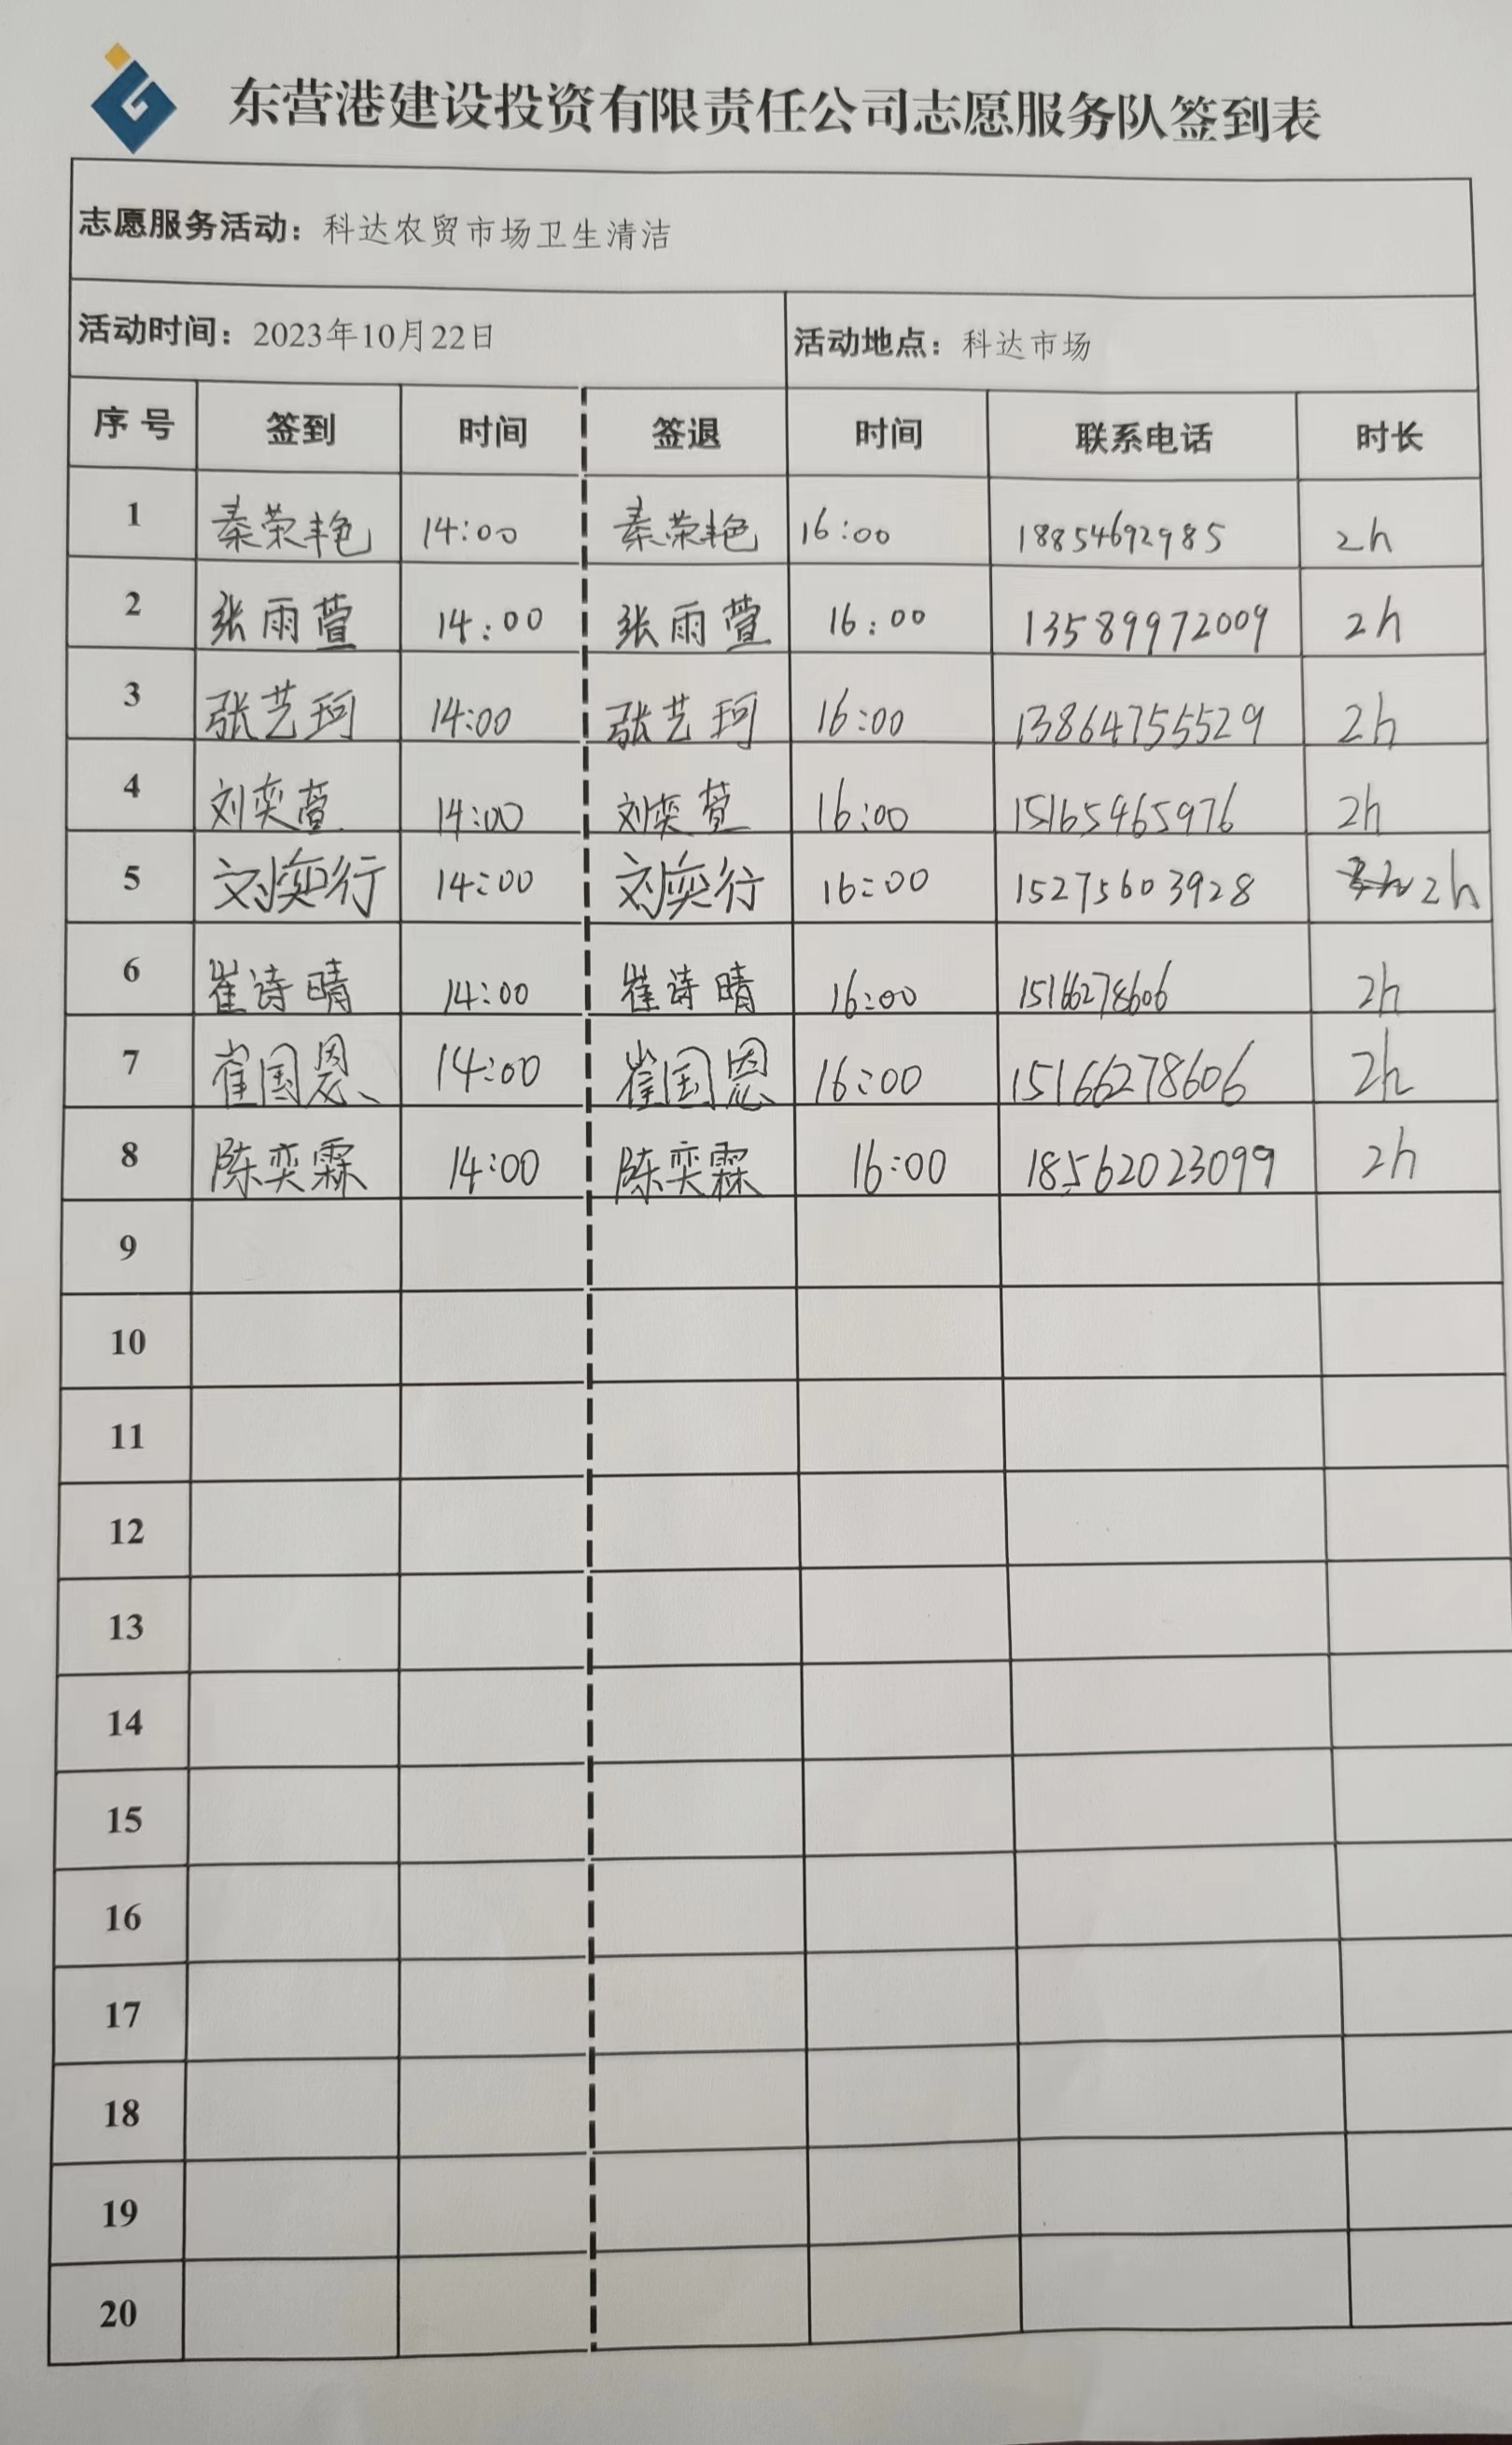 东营港建设投资有限责任公司志愿服务队签到表
志愿服务活动：科达农贸市场卫生清洁
活动时间：2023年10月22日 活动地点：科达市场
序号 签到 时间 签退 时间 联系电话 时长
1 秦荣艳 14:00 秦荣艳 16:00 18854692985 2h
2 张雨萱 14:00 张雨萱 16:00 13589972009 2h
3 张艺珂 14:00 张艺珂 16:00 13864755529 2h
4 刘奕萱 14:00 刘奕萱 16:00 15165465976 2h
5 刘奕行 14:00 刘奕行 16:00 15275603928 2h
6 崔诗晴 14:00 崔诗晴 16:00 15166278606 2h
7 崔国恩 14:00 崔国恩 16:00 15166278606 2h
8 陈奕霖 14:00 陈奕霖 16:00 18562023099 2h
9
10
11
12
13
14
15
16
17
18
19
20